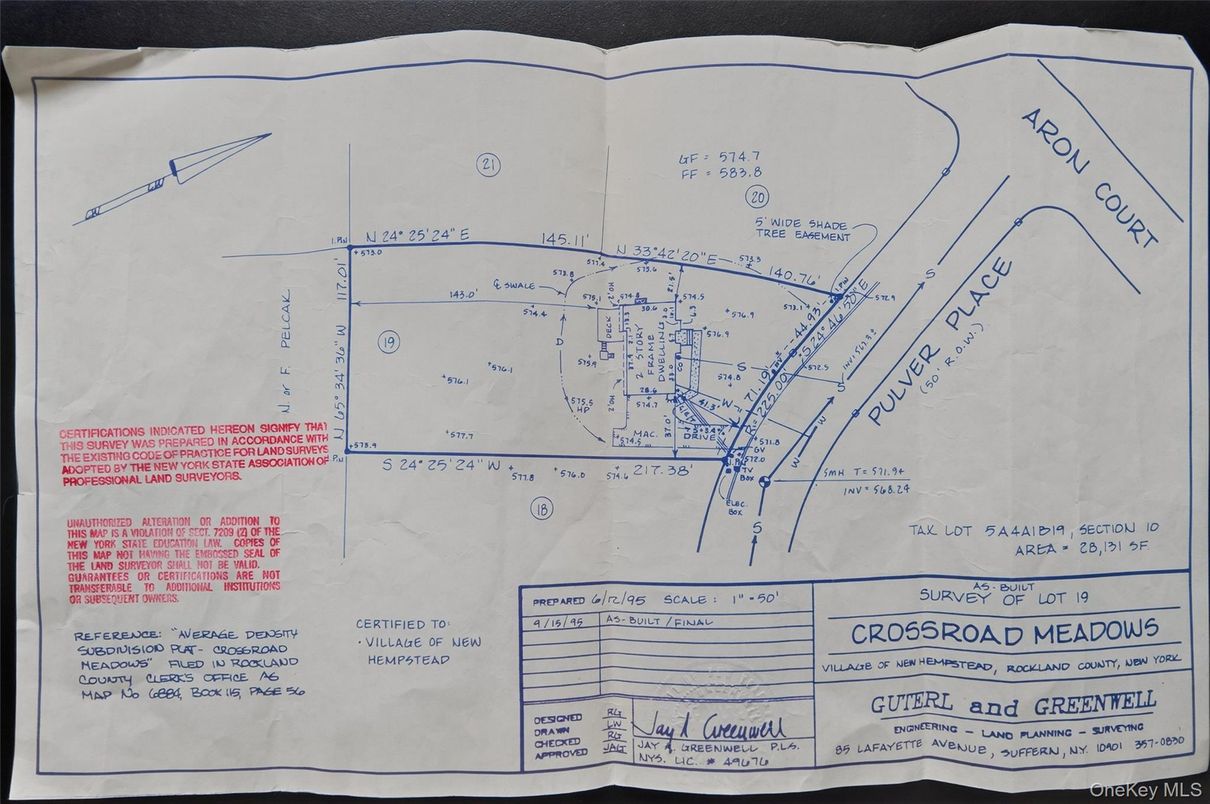 ARON COURT
PULVER PLACE
(50' R.O.W.)
21
GF = 574.7
FF = 583.8
20
5' WIDE SHADE
TREE EASEMENT
I. PIN
N 24° 25' 24" E
145.11'
N 33° 42' 20" E
140.76'
I. PIN
573.0
577.4
573.6
573.3
573.8
117.01'
N 65° 34' 36" W
143.0'
₵ SWALE
574.4
573.1
574.8
574.5
21.5'
2' OH
30.6
573.1
44.93'
S 24° 46' 50" E
572.9
N. or F. PELCAK
19
D
DECK
2 STORY
FRAME
DWELLING
576.9
576.9
576.1
576.1
575.9
CO
S
574.8
572.5
INV 567.3±
71.19'
R = 225.00'
575.5
HP
2' OH
28.6
574.7
41.3'
W
37.0'
MAC.
DRIVE
574.5
571.8
GV
572.0
I. PIN
TV
BOX
ELEC.
BOX
577.7
573.9
I. PIN
S 24° 25' 24" W
577.8
576.0
574.6
217.38'
18
S
S
W
W
SMH T = 571.94
INV = 568.24
S
CERTIFICATIONS INDICATED HEREON SIGNIFY THAT
THIS SURVEY WAS PREPARED IN ACCORDANCE WITH
THE EXISTING CODE OF PRACTICE FOR LAND SURVEYS
ADOPTED BY THE NEW YORK STATE ASSOCIATION OF
PROFESSIONAL LAND SURVEYORS.
UNAUTHORIZED ALTERATION OR ADDITION TO
THIS MAP IS A VIOLATION OF SECT. 7209 (2) OF THE
NEW YORK STATE EDUCATION LAW. COPIES OF
THIS MAP NOT HAVING THE EMBOSSED SEAL OF
THE LAND SURVEYOR SHALL NOT BE VALID.
GUARANTEES OR CERTIFICATIONS ARE NOT
TRANSFERABLE TO ADDITIONAL INSTITUTIONS
OR SUBSEQUENT OWNERS.
REFERENCE: "AVERAGE DENSITY
SUBDIVISION PLAT- CROSSROAD
MEADOWS" FILED IN ROCKLAND
COUNTY CLERK'S OFFICE AS
MAP No 6884, BOOK 115, PAGE 56
CERTIFIED TO:
· VILLAGE OF NEW
HEMPSTEAD
TAX LOT 5A4A1B19, SECTION 10
AREA = 28,131 SF.
PREPARED 6/12/95 SCALE: 1" = 50'
9/15/95 AS-BUILT / FINAL
DESIGNED RG
DRAWN LW
CHECKED RG
APPROVED JAG
Jay A Greenwell
JAY A. GREENWELL P.L.S.
NYS. LIC. # 49676
AS-BUILT
SURVEY OF LOT 19
CROSSROAD MEADOWS
VILLAGE OF NEW HEMPSTEAD, ROCKLAND COUNTY, NEW YORK
GUTERL and GREENWELL
ENGINEERING - LAND PLANNING - SURVEYING
85 LAFAYETTE AVENUE, SUFFERN, N.Y. 10901 357-0830
OneKey MLS